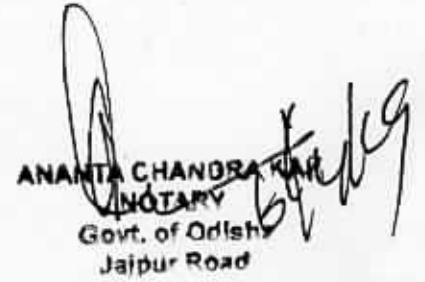 ANANTA CHANDRA KAR
NOTARY
Govt. of Odisha
Jajpur Road